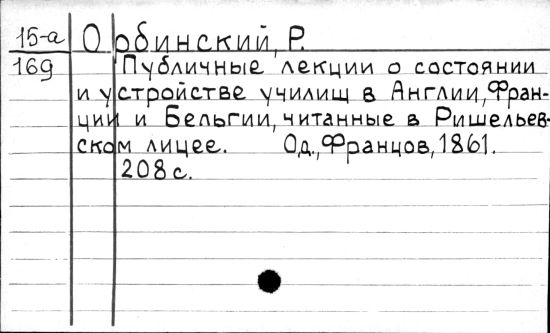 15-а Орбинский, Р.
169 Публичные лекции о состоянии
и устройстве училищ в Англии, Фран-
ции и Бельгии, читанные в Ришельев-
ском лицее. Од., Францов, 1861.
208 с.